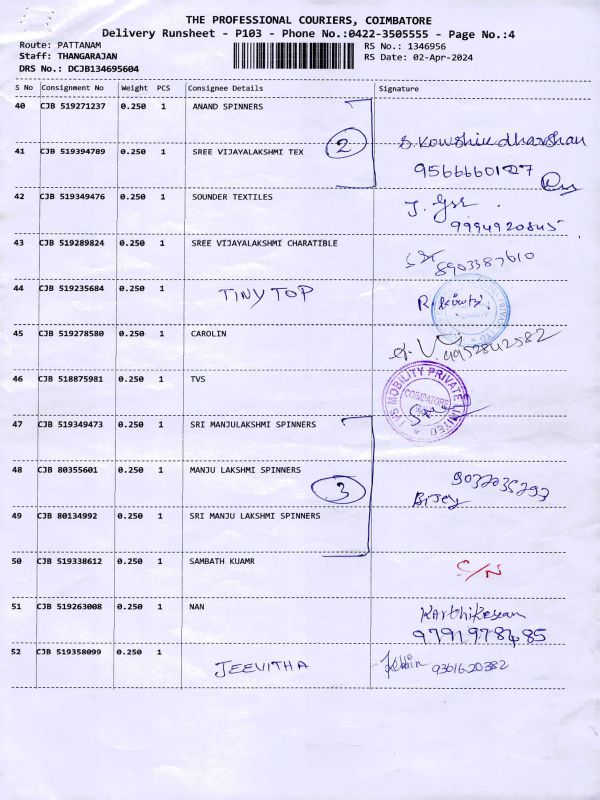 THE PROFESSIONAL COURIERS, COIMBATORE
Delivery Runsheet - P103 - Phone No.:0422-3505555 - Page No.:4
Route: PATTANAM RS No.: 1346956
Staff: THANGARAJAN RS Date: 02-Apr-2024
DRS No.: DCJB134695604
S No Consignment No Weight PCS Consignee Details Signature
40 CJB 519271237 0.250 1 ANAND SPINNERS
2 S. Kowshik dharshan
41 CJB 519394789 0.250 1 SREE VIJAYALAKSHMI TEX
42 CJB 519349476 0.250 1 SOUNDER TEXTILES
9994920845
43 CJB 519289824 0.250 1 SREE VIJAYALAKSHMI CHARATIBLE
8903387610
44 CJB 519235684 0.250 1 TINY TOP
45 CJB 519278580 0.250 1 CAROLIN
9952842582
46 CJB 518875981 0.250 1 TVS
TVS MOBILITY PRIVATE LIMITED
COIMBATORE
47 CJB 519349473 0.250 1 SRI MANJULAKSHMI SPINNERS
48 CJB 80355601 0.250 1 MANJU LAKSHMI SPINNERS
3 Bijey
49 CJB 80134992 0.250 1 SRI MANJU LAKSHMI SPINNERS
50 CJB 519338612 0.250 1 SAMBATH KUAMR
S/N
51 CJB 519263008 0.250 1 NAN Karthikeyan
52 CJB 519358099 0.250 1 JEEVITHA 9361620382